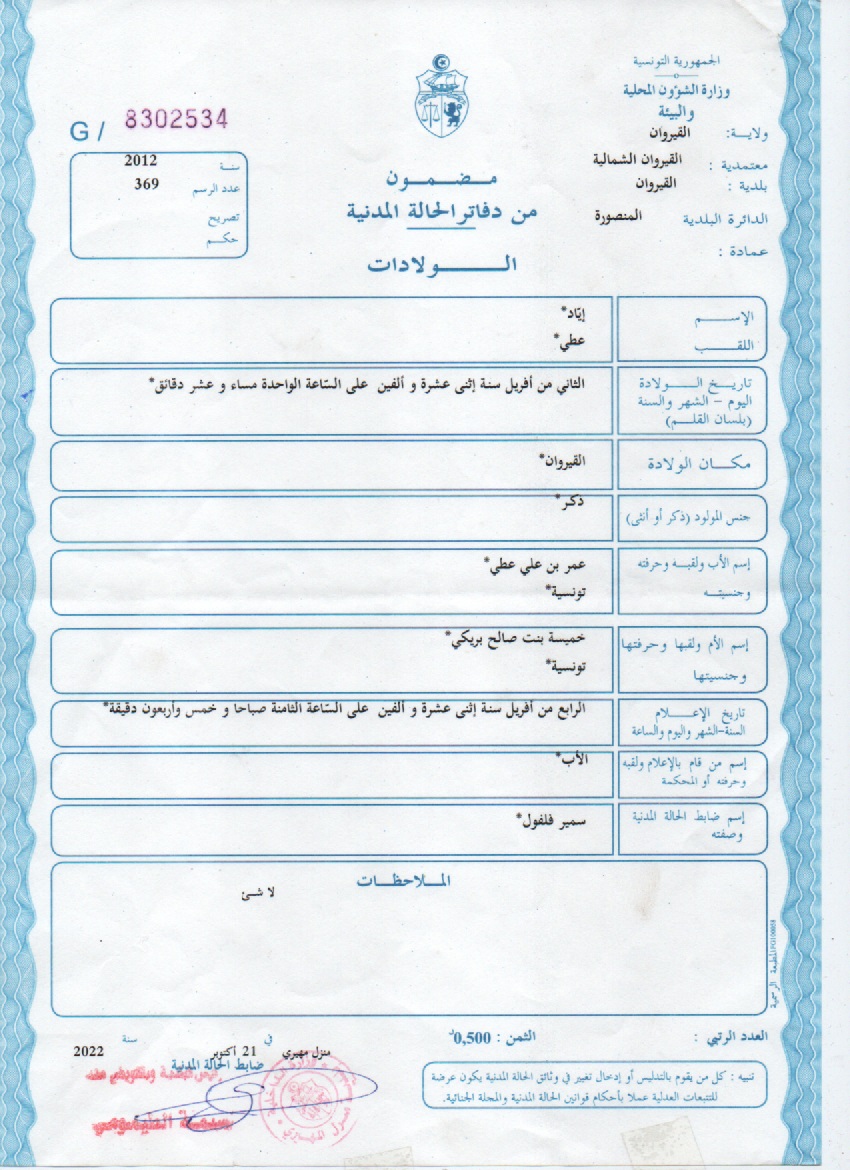 الجمهورية التونسية
وزارة الشؤون المحلية
والبيئة
ولاية: القيروان
معتمدية : القيروان الشمالية
بلدية : القيروان
الدائرة البلدية المنصورة
عمادة :
G / 8302534
سنة 2012
عدد الرسم 369
تصريح
حكم
مضمون
من دفاتر الحالة المدنية
الولادات
الإسم إيّاد*
اللقب عطي*
تاريخ الولادة
اليوم - الشهر والسنة
(بلسان القلم)
الثاني من أفريل سنة إثنى عشرة و ألفين على السّاعة الواحدة مساء و عشر دقائق*
مكان الولادة القيروان*
جنس المولود (ذكر أو أنثى) ذكر*
إسم الأب ولقبه وحرفته عمر بن علي عطي*
وجنسيته تونسية*
إسم الأم ولقبها وحرفتها خميسة بنت صالح بريكي*
وجنسيتها تونسية*
تاريخ الإعلام
السنة-الشهر واليوم والساعة
الرابع من أفريل سنة إثنى عشرة و ألفين على السّاعة الثامنة صباحا و خمس وأربعون دقيقة*
إسم من قام بالإعلام ولقبه
وحرفته أو المحكمة
الأب*
إسم ضابط الحالة المدنية
وصفته
سمير فلفول*
الملاحظات
لا شئ
المطبعة الرسمية
العدد الرتبي :
الثمن : 0,500د
منزل مهيري في 21 أكتوبر سنة 2022
ضابط الحالة المدنية
تنبيه : كل من يقوم بالتدليس أو إدخال تغيير في وثائق الحالة المدنية يكون عرضة
للتتبعات العدلية عملا بأحكام قوانين الحالة المدنية والمجلة الجنائية.